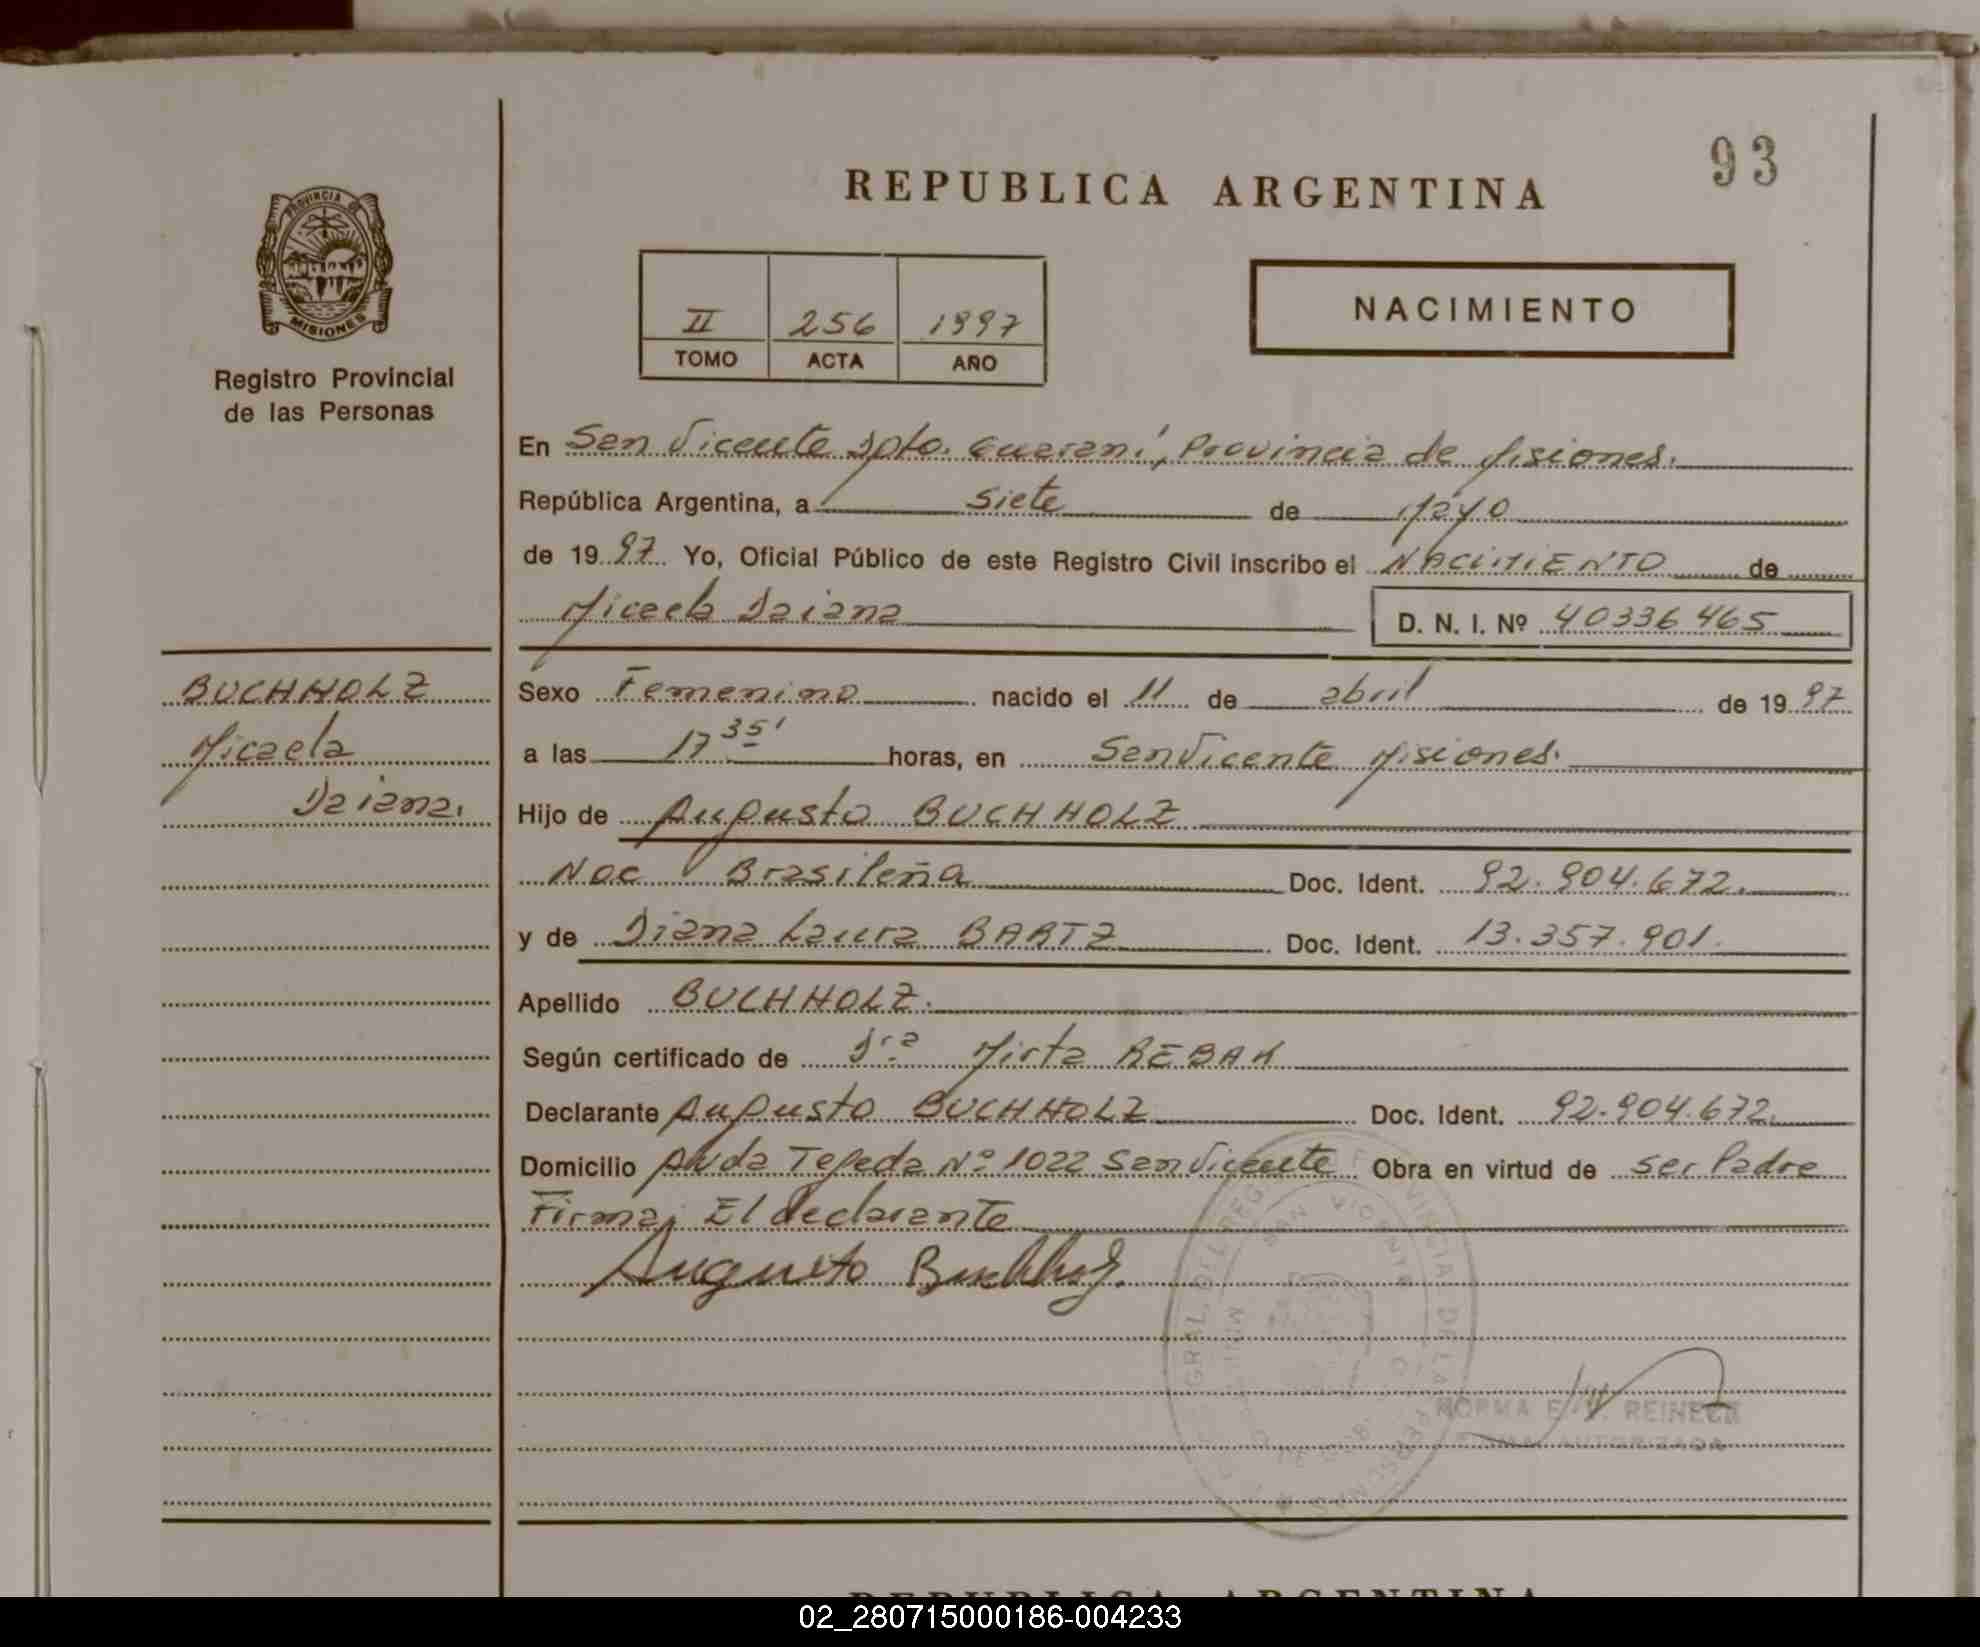 93
REPUBLICA ARGENTINA
PROVINCIA DE
MISIONES
Registro Provincial
de las Personas
II 256 1997
TOMO ACTA AÑO
NACIMIENTO
En San Vicente Dpto. Guaraní, Provincia de Misiones.
República Argentina, a siete de Mayo
de 1997 Yo, Oficial Público de este Registro Civil inscribo el NACIMIENTO de
Micaela Daiana D. N. I. Nº 40336465
BUCHHOLZ
Micaela
Daiana.
Sexo Femenino nacido el 11 de abril de 1997
a las 17 35' horas, en San Vicente Misiones.
Hijo de Augusto BUCHHOLZ
Nac Brasileña Doc. Ident. 92.904.672.
y de Diana Laura BARTZ Doc. Ident. 13.357.901.
Apellido BUCHHOLZ.
Según certificado de Dra Mirta REBAK
Declarante Augusto BUCHHOLZ Doc. Ident. 92.904.672.
Domicilio Avda Tejeda Nº 1022 San Vicente Obra en virtud de ser Padre
Firma: El declarante
Augusto Buchholz.
SAN VICENTE
NORMA E. V. REINECK
FIRMA AUTORIZADA
REPUBLICA ARGENTINA
02_280715000186-004233